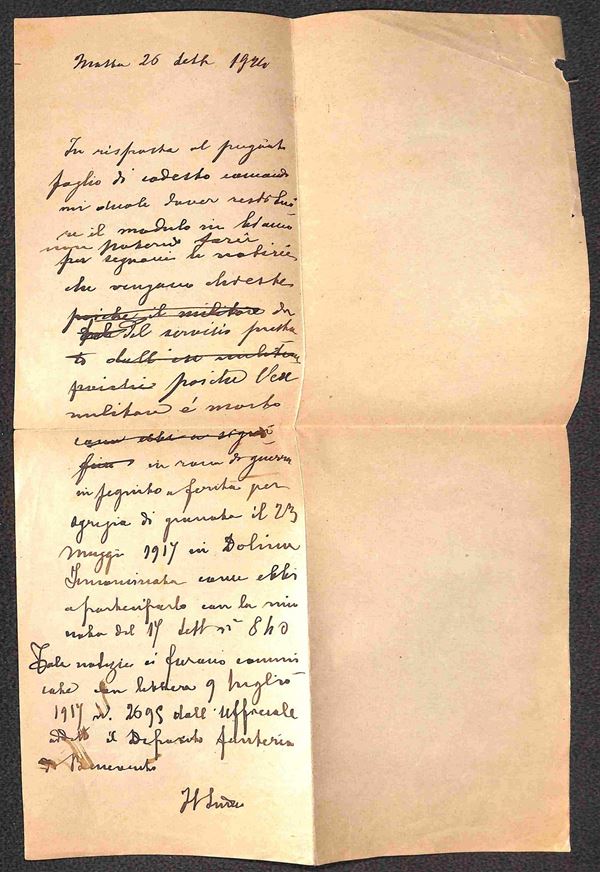 Massa 26 sett 1920
In risposta al pregiato
foglio di codesto comando
mi duole dover restitui
re il modulo in bianco
non potervi
per segnarvi le notizie
che vengano chieste
poiché il militare da
del servizio presta
to dall ex militare
poiché l'ex
militare é morto
come ebbi a signi
in zona di guerra
in seguito a ferita per
di granata il 23
Maggio 1917 in Dolina
Innominata come ebbi
a parteciparlo con la mia
nota del 17 sett n° 840
Tale notizie ci furano communi
cate con lettera 9 luglio
1917 n. 2695 dall'ufficiale
addetto il Deposito fanteria
di Benevento
Il Sindaco